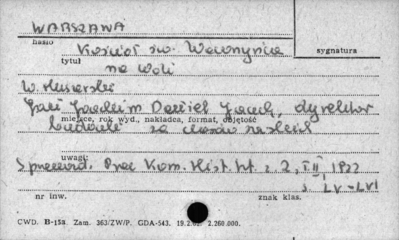 WARSZAWA
hasło
Kościół św. Wawrzyńca
sygnatura
tytuł
na Woli
W. Husarski
Jauch Joachim Daniel Jauch, dyrektor
miejsce, rok wyd., nakładca, format, objętość
za czasów saskich
uwagi:
Sprawozd. Prac Kom. Hist. Szt. z. 2, T II, 1922
s. LV-LVI
nr inw.
znak klas.
CWD. B-15a. Zam. 363/ZW/P. GDA-543. 19.2.62. 2.260.000.